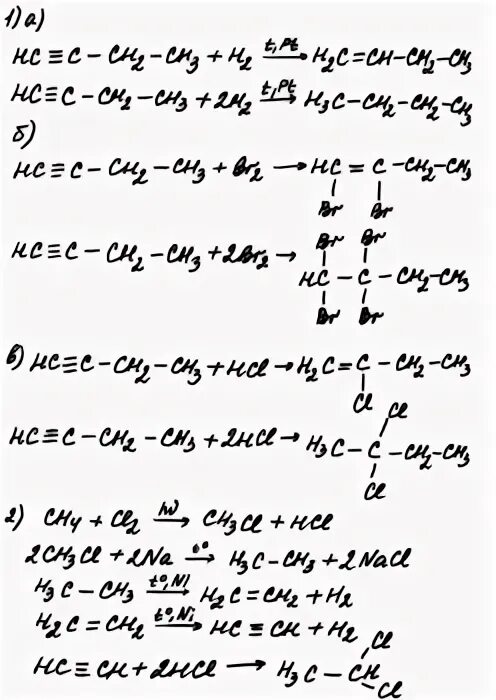 1) а)
HC≡C–CH₂–CH₃ + H₂ —t, Pt→ H₂C=CH–CH₂–CH₃
HC≡C–CH₂–CH₃ + 2H₂ —t, Pt→ H₃C–CH₂–CH₂–CH₃
б)
HC≡C–CH₂–CH₃ + Br₂ → HC=C–CH₂–CH₃
Br Br
Br Br
HC≡C–CH₂–CH₃ + 2Br₂ → HC–C–CH₂–CH₃
Br Br
в) HC≡C–CH₂–CH₃ + HCl → H₂C=C–CH₂–CH₃
Cl
Cl
HC≡C–CH₂–CH₃ + 2HCl → H₃C–C–CH₂–CH₃
Cl
2) CH₄ + Cl₂ —hν→ CH₃Cl + HCl
2CH₃Cl + 2Na —t°→ H₃C–CH₃ + 2NaCl
H₃C–CH₃ —t°, Ni→ H₂C=CH₂ + H₂
H₂C=CH₂ —t°, Ni→ HC≡CH + H₂
Cl
HC≡CH + 2HCl → H₃C–CH
Cl